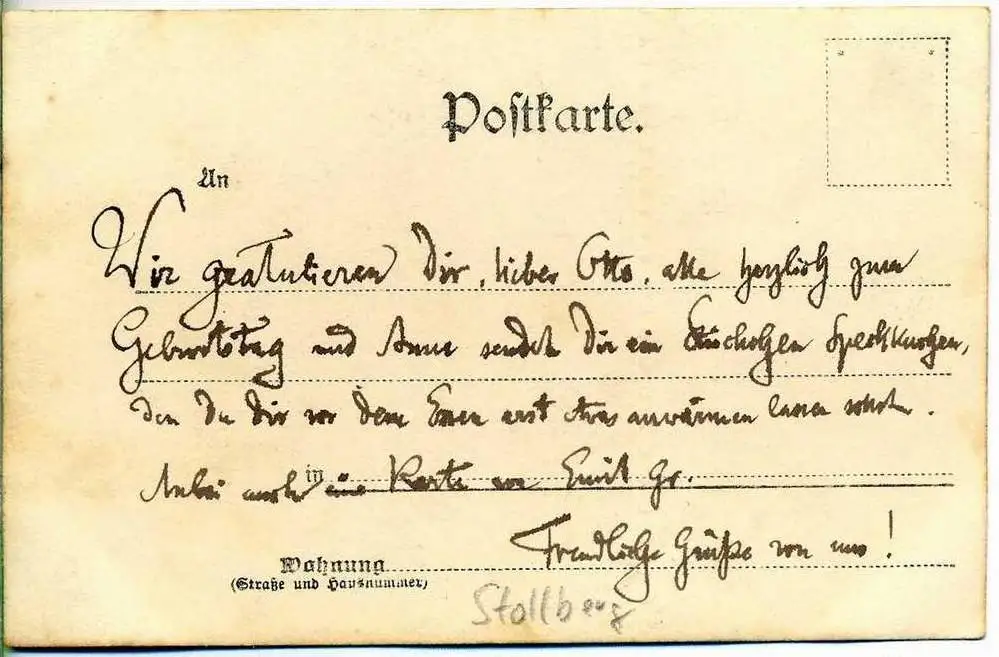 Postkarte.
An
Wir gratulieren Dir, lieber Otto, alle herzlich zum
Geburtstag und Anna sendet Dir ein Stückchen Speckkuchen,
den Du Dir vor dem Essen erst etwas anwärmen lassen sollst.
Anbei auch eine Karte von Emil Gr.
in
Freundliche Grüße von uns!
Wohnung
(Straße und Hausnummer)
Stollberg